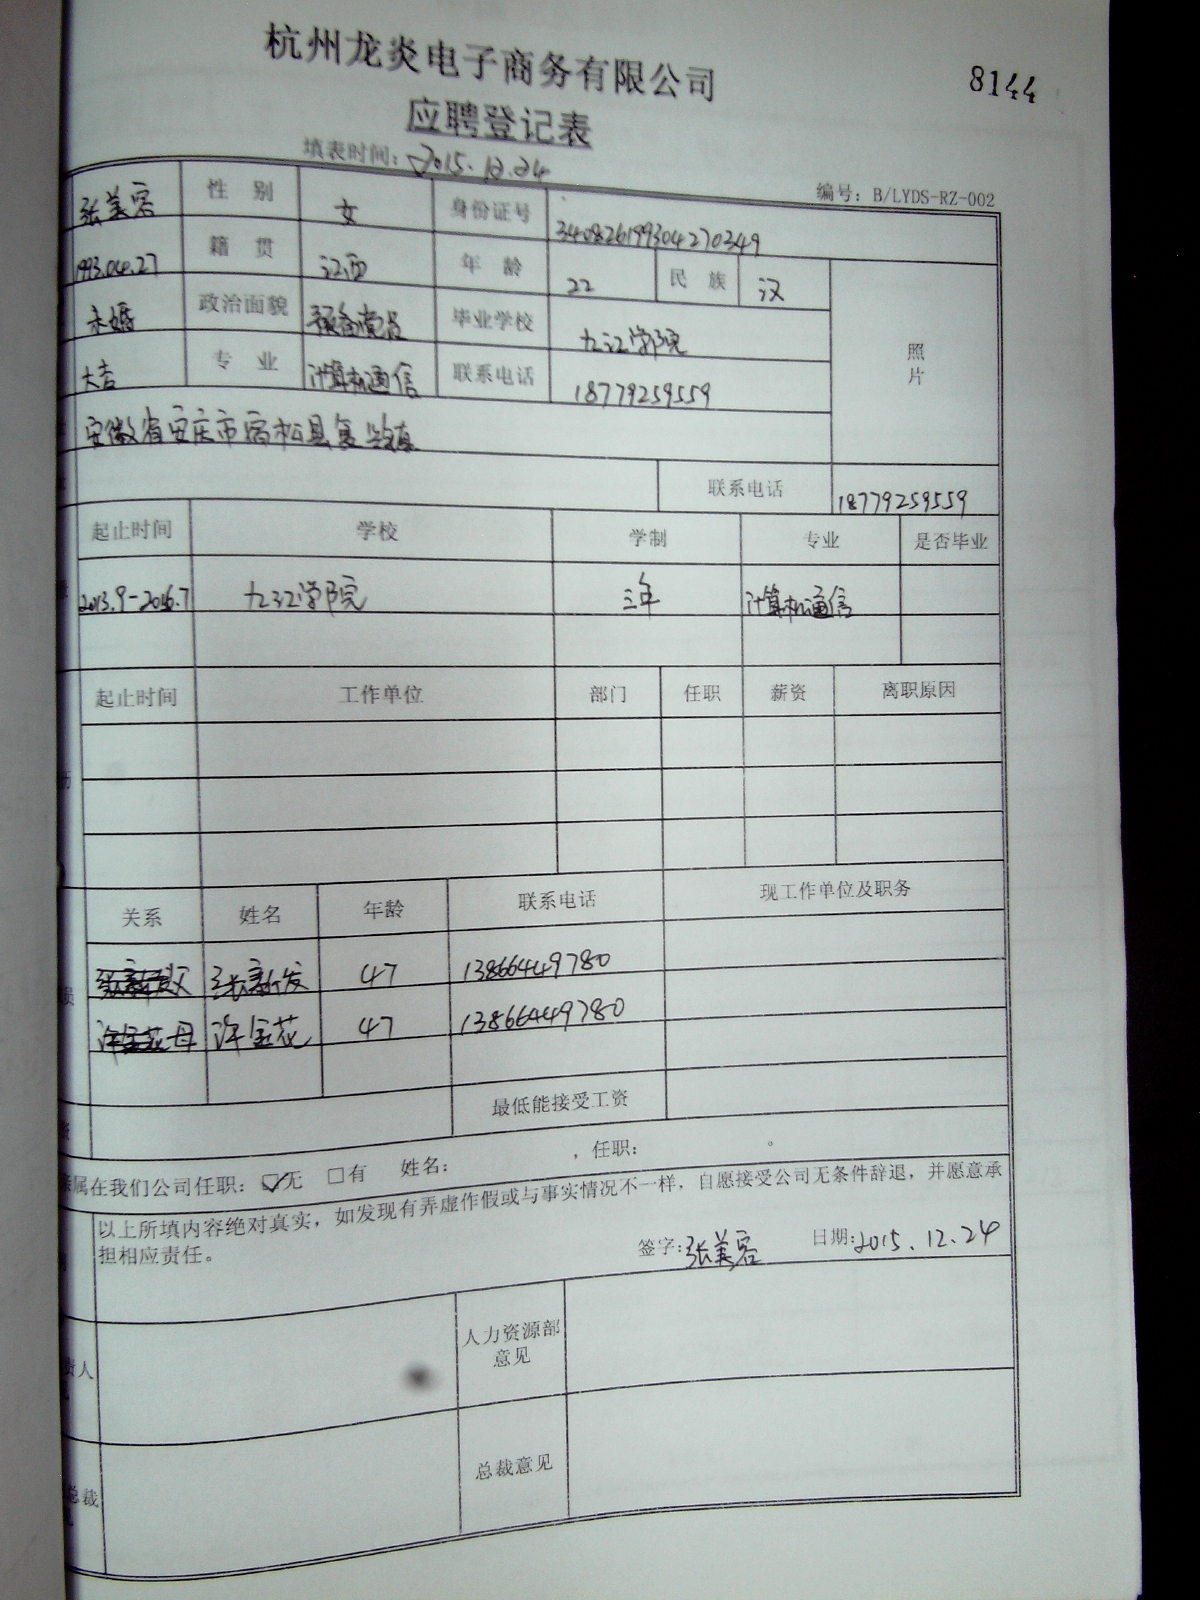 杭州龙炎电子商务有限公司
8144
应聘登记表
填表时间: 2015.12.24
编号: B/LYDS-RZ-002
张美容 性 别 女 身份证号 340826199304270349
1993.04.27 籍 贯 江西 年 龄 22 民 族 汉
未婚 政治面貌 预备党员 毕业学校 九江学院
照片
大吉 专 业 计算机通信 联系电话 18779259559
安徽省安庆市宿松县复兴镇
联系电话 18779259559
起止时间 学校 学制 专业 是否毕业
2013.9-2016.7 九江学院 三年 计算机通信
起止时间 工作单位 部门 任职 薪资 离职原因
历
关系 姓名 年龄 联系电话 现工作单位及职务
父 张新发 47 13866449780
母 许金花 47 13866449780
最低能接受工资
亲属在我们公司任职: ☑无 □有 姓名: , 任职: 。
以上所填内容绝对真实，如发现有弄虚作假或与事实情况不一样，自愿接受公司无条件辞退，并愿意承
担相应责任。
签字: 张美容 日期: 2015.12.24
责人
人力资源部
意见
总裁
总裁意见